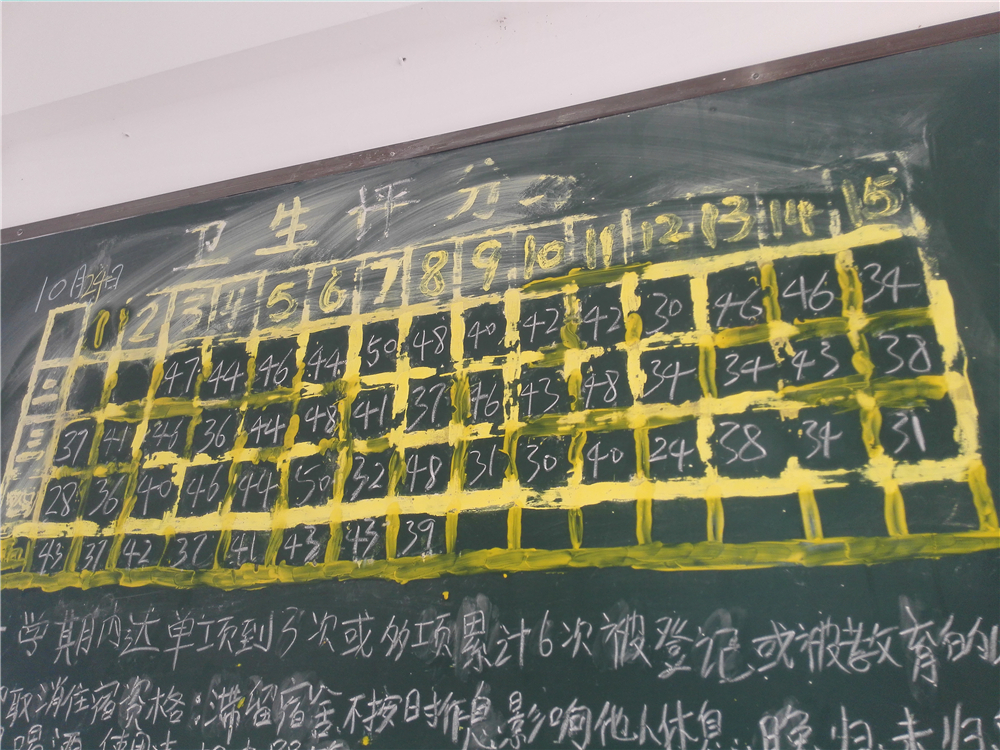 卫生评分
10月24日
1 2 3 4 5 6 7 8 9 10 11 12 13 14 15
二 47 44 46 44 50 48 40 42 42 30 46 46 34
三 37 41 46 36 44 48 41 37 46 43 48 34 34 43 38
四 28 36 40 46 44 50 32 48 31 30 40 24 38 34 31
五 43 37 42 37 41 43 43 39
学期内达单项到3次或多项累计6次被登记或被教育的
取消住宿资格:滞留宿舍不按时作息影响他人休息 晚归未归
喝酒